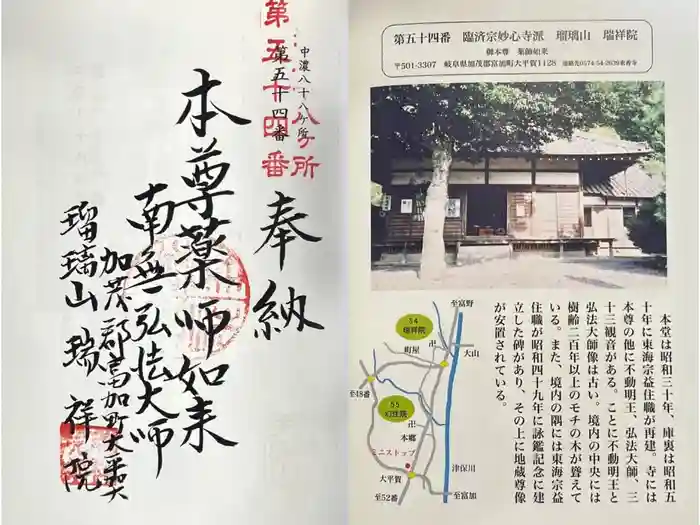 中濃八十八ヶ所
第五十四番
第五十四番
奉納
本尊薬師如来
南無弘法大師
加茂郡富加町大平賀
瑠璃山瑞祥院
第五十四番 臨済宗妙心寺派 瑠璃山 瑞祥院
御本尊 薬師如来
〒501-3307 岐阜県加茂郡富加町大平賀1128 連絡先0574-54-2639東香寺
本堂は昭和三十年、庫裏は昭和五
十年に東海宗益住職が再建。寺には
本尊の他に不動明王、弘法大師、三
十三観音がある。ことに不動明王と
弘法大師像は古い。境内の中央には
樹齢二百年以上のモチの木が聳えて
いる。また、境内の隅には東海宗益
住職が昭和四十九年に詠鑑記念に建
立した碑があり、その上に地蔵尊像
が安置されている。
至富野
54
瑞祥院
町屋
大山
至48番
55
本郷
ミニストップ
津保川
大平賀
至52番
至富加